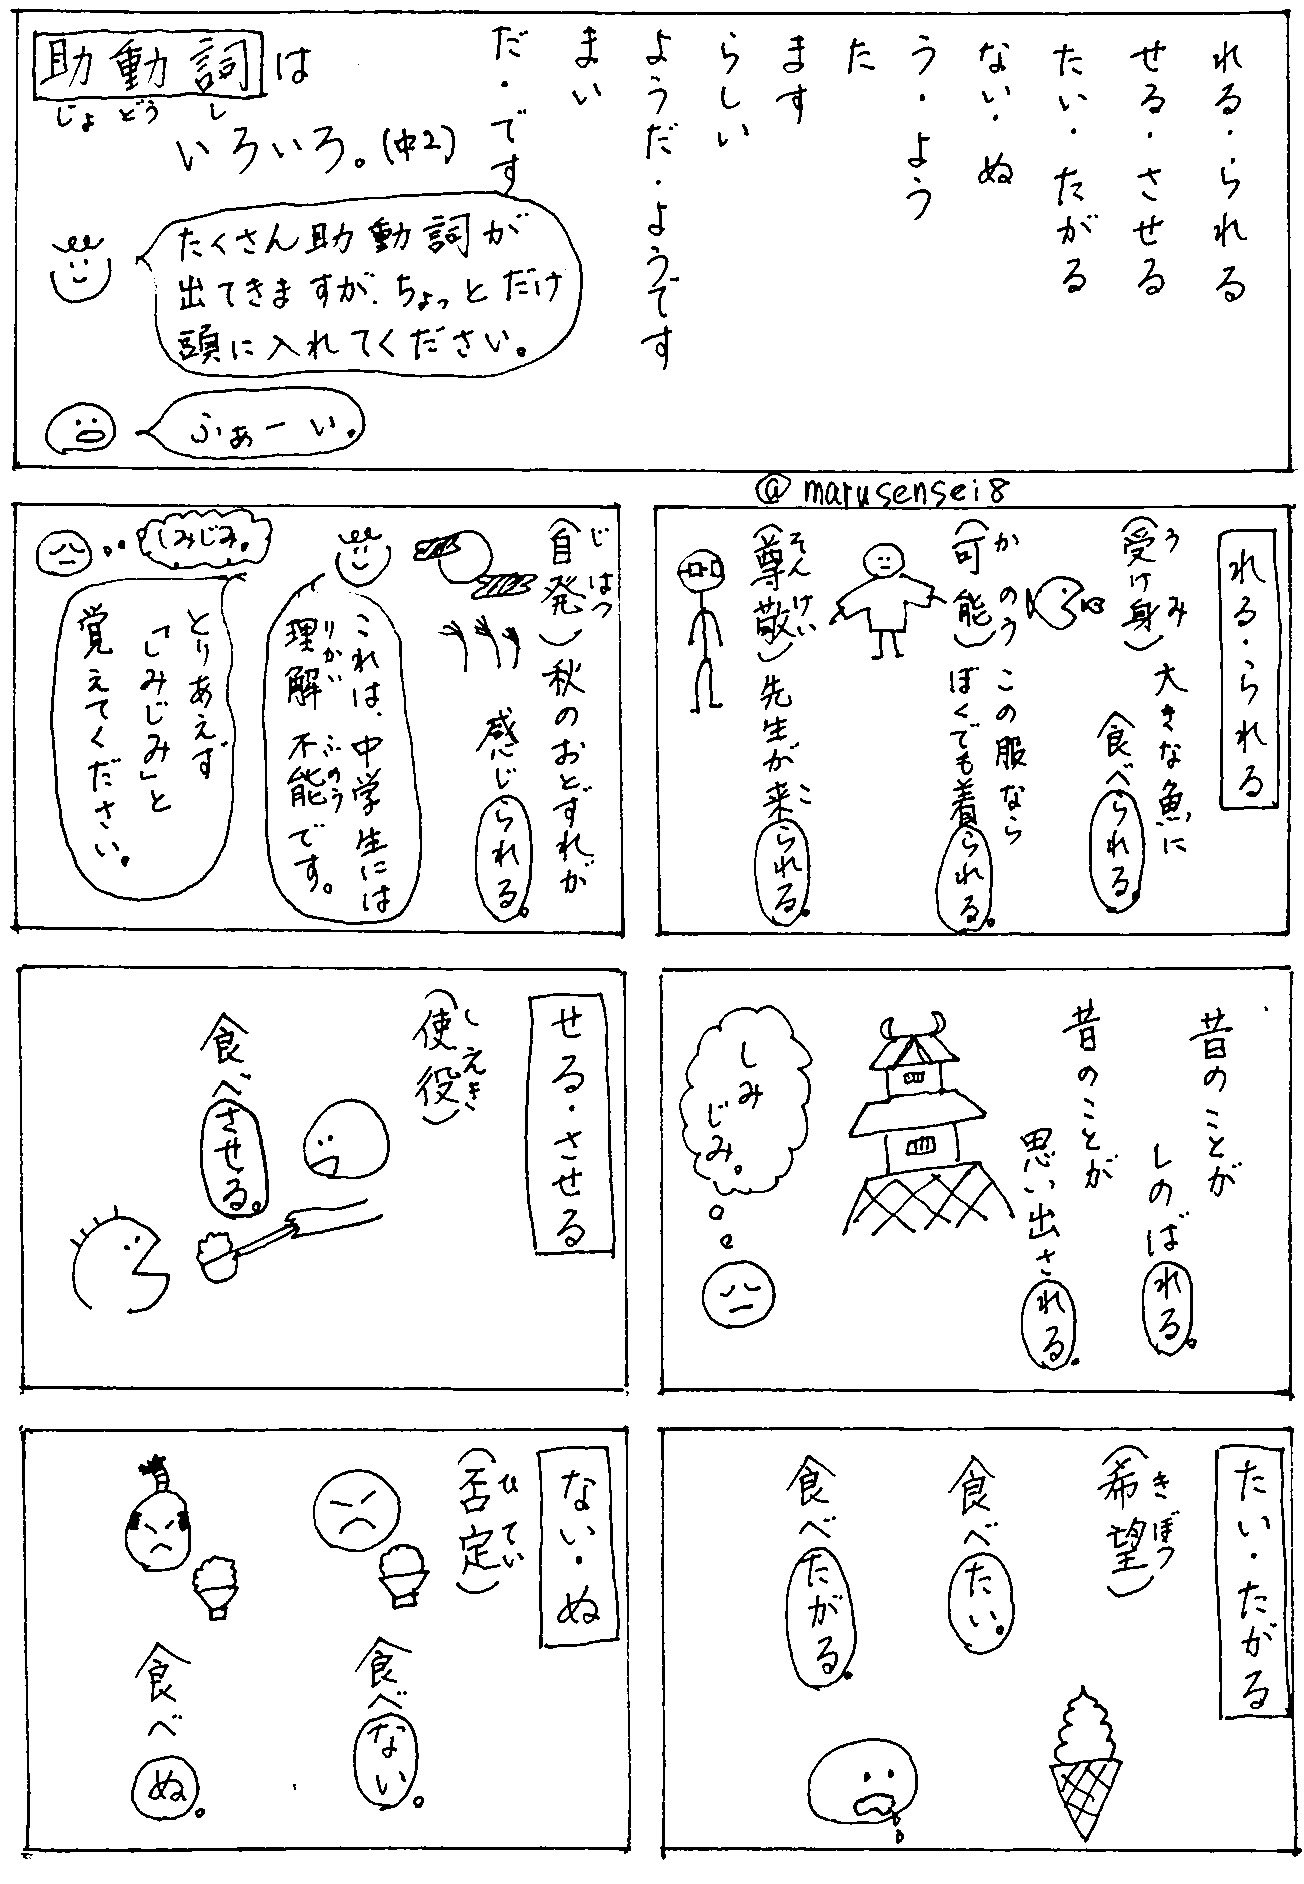 助動詞は
じょどうし
いろいろ。(中2)
れる・られる
せる・させる
たい・たがる
ない・ぬ
う・よう
た
ます
らしい
ようだ・ようです
まい
だ・です
たくさん助動詞が
出てきますが、ちょっとだけ
頭に入れてください。
ふぁーい。
@marusensei8
れる・られる
(受け身)
うみ
大きな魚に
食べられる。
(可能)
かのう
この服なら
ぼくでも着られる。
(尊敬)
そんけい
先生が来られる。
こ
(自発)
じはつ
秋のおとずれが
感じられる。
これは、中学生には
理解不能です。
りかいふのう
とりあえず
「しみじみ」と
覚えてください。
しみじみ。
昔のことが
しのばれる。
昔のことが
思い出される。
しみ
じみ。
せる・させる
(使役)
しえき
食べさせる。
たい・たがる
(希望)
きぼう
食べたい。
食べたがる。
ない・ぬ
(否定)
ひてい
食べない。
食べぬ。